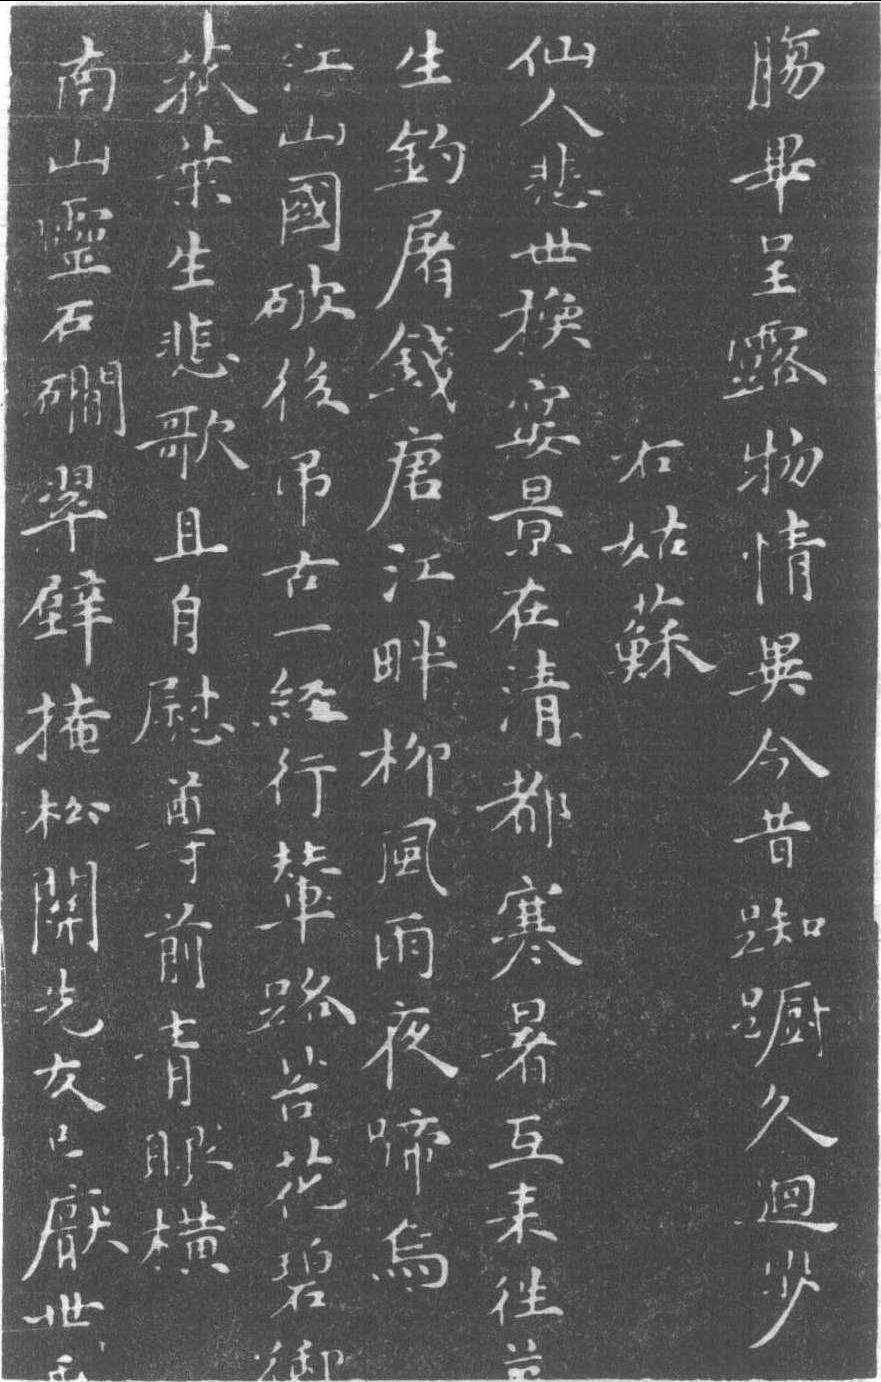 觴畢呈露物情異今昔踟躕久迴步
右姑蘇
仙人悲世換宴景在清都寒暑互来往
生釣屠錢唐江畔柳風雨夜啼烏
江山國破後吊古一經行輦路苔花碧御
荻葉生悲歌且自慰尊前青眼橫
南山靈石磵翠壁掩松關先友已厭世